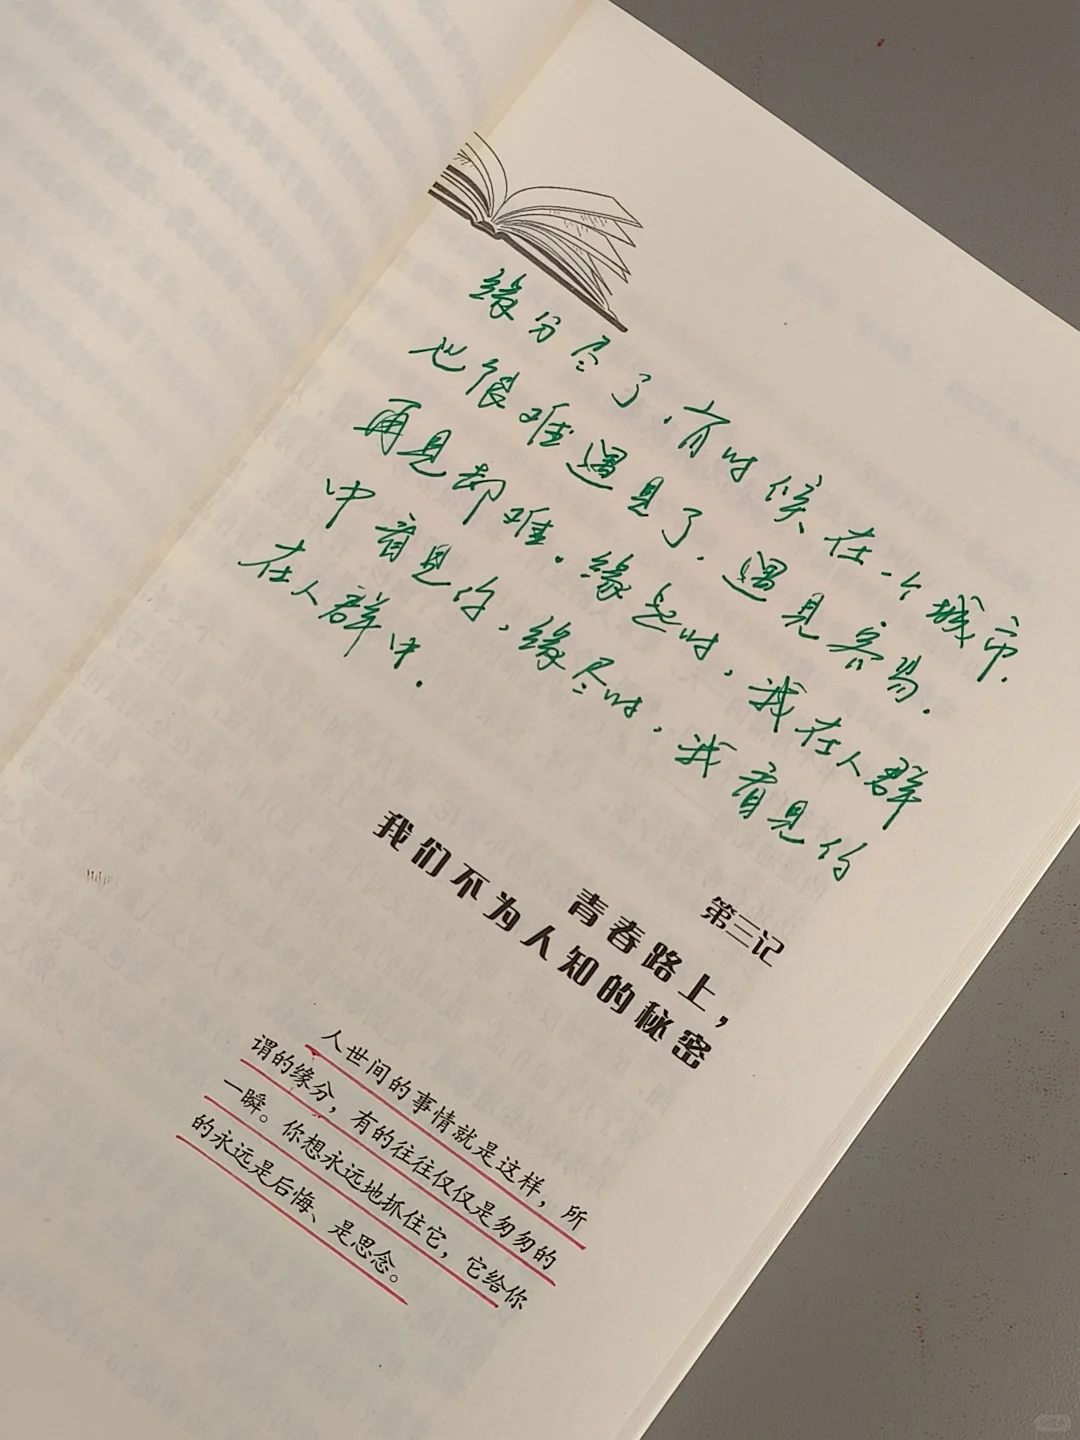 缘分尽了,有时候、在一个城市.
也很难遇见了.遇见容易.
再见却难。缘起时,我在人群
中看见你,缘尽时,我看见你
在人群中.
第三记
青春路上,
我们不为人知的秘密
人世间的事情就是这样,所
谓的缘分,有的往往仅仅是匆匆的
一瞬。你想永远地抓住它,它给你
的永远是后悔、是思念。